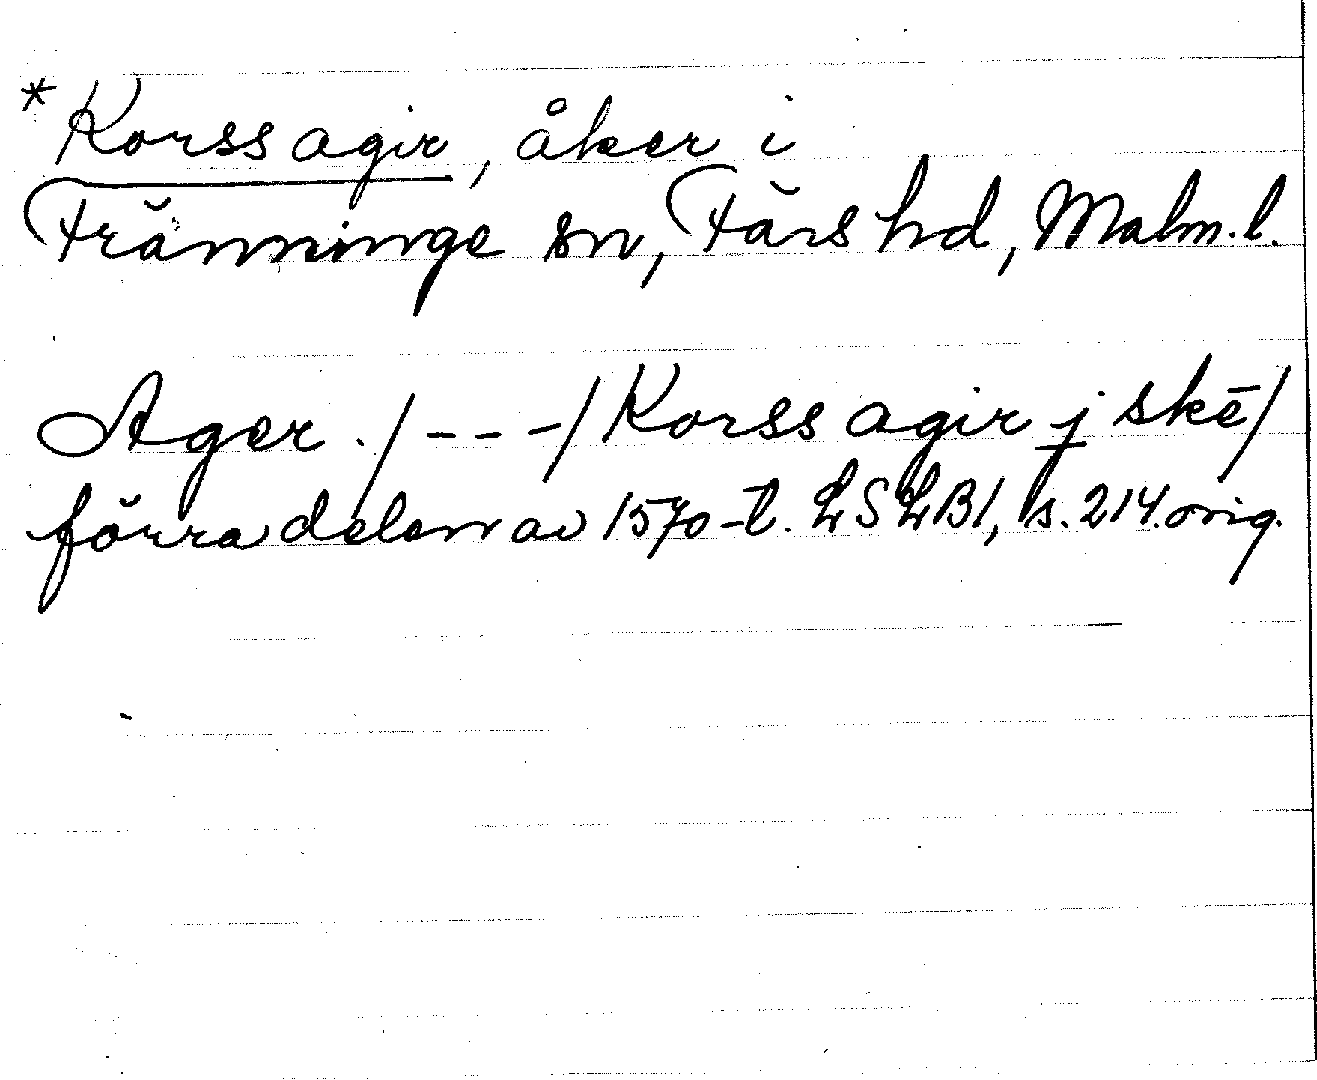 *Korss agir, åker i
Fränninge sn, Färs hd, Malm. l.
Ager ./ - - - / Korss agir j skē/
förra delen av 1570-t. LSLB1, s. 214 orig.